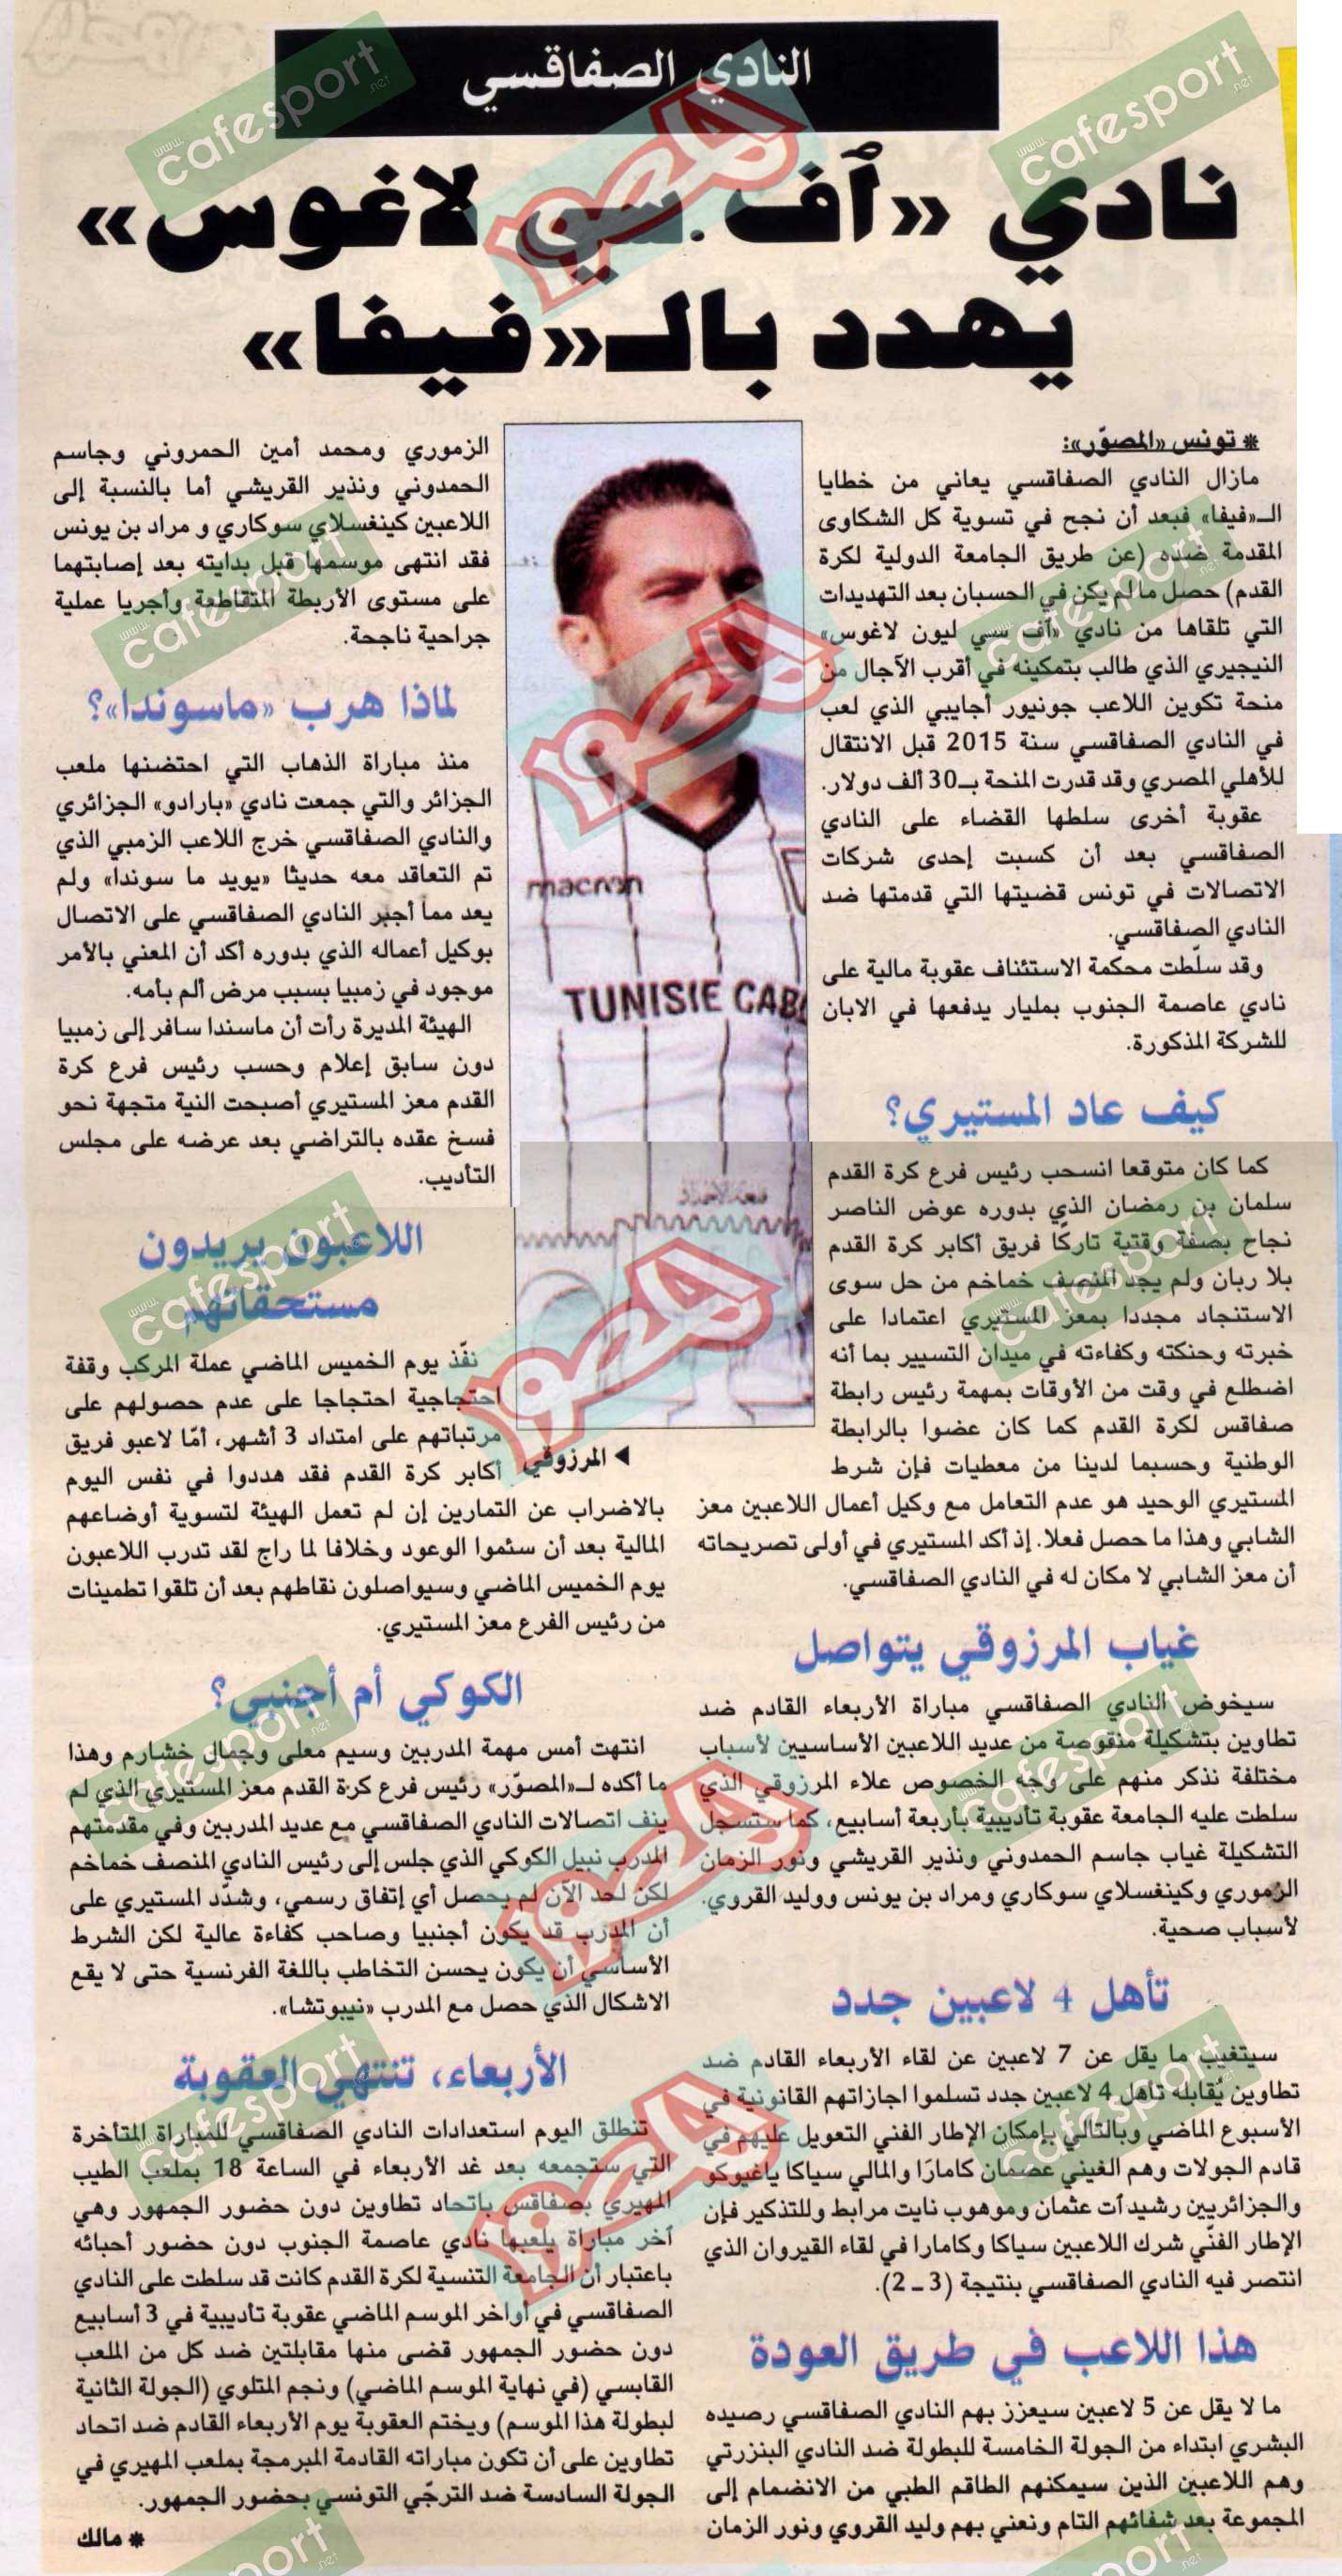 النادي الصفاقسي
نادي «أف.سي لاغوس»
يهدد بالـ«فيفا»
* تونس «المصوّر»:
مازال النادي الصفاقسي يعاني من خطايا
الـ«فيفا» فبعد أن نجح في تسوية كل الشكاوى
المقدمة ضده (عن طريق الجامعة الدولية لكرة
القدم) حصل ما لم يكن في الحسبان بعد التهديدات
التي تلقاها من نادي «أف سي ليون لاغوس»
النيجيري الذي طالب بتمكينه في أقرب الآجال من
منحة تكوين اللاعب جونيور أجايبي الذي لعب
في النادي الصفاقسي سنة 2015 قبل الانتقال
للأهلي المصري وقد قدرت المنحة بـ30 ألف دولار.
عقوبة أخرى سلطها القضاء على النادي
الصفاقسي بعد أن كسبت إحدى شركات
الاتصالات في تونس قضيتها التي قدمتها ضد
النادي الصفاقسي.
وقد سلّطت محكمة الاستئناف عقوبة مالية على
نادي عاصمة الجنوب بمليار يدفعها في الابان
للشركة المذكورة.
كيف عاد المستيري؟
كما كان متوقعا انسحب رئيس فرع كرة القدم
سلمان بن رمضان الذي بدوره عوض الناصر
نجاح بصفة وقتية تاركًا فريق أكابر كرة القدم
بلا ربان ولم يجد المنصف خماخم من حل سوى
الاستنجاد مجددا بمعز المستيري اعتمادا على
خبرته وحنكته وكفاءته في ميدان التسيير بما أنه
اضطلع في وقت من الأوقات بمهمة رئيس رابطة
صفاقس لكرة القدم كما كان عضوا بالرابطة
الوطنية وحسبما لدينا من معطيات فإن شرط
المستيري الوحيد هو عدم التعامل مع وكيل أعمال اللاعبين معز
الشابي وهذا ما حصل فعلا. إذ أكد المستيري في أولى تصريحاته
أن معز الشابي لا مكان له في النادي الصفاقسي.
غياب المرزوقي يتواصل
سيخوض النادي الصفاقسي مباراة الأربعاء القادم ضد
تطاوين بتشكيلة منقوصة من عديد اللاعبين الأساسيين لأسباب
مختلفة نذكر منهم على وجه الخصوص علاء المرزوقي الذي
سلطت عليه الجامعة عقوبة تأديبية بأربعة أسابيع، كما ستسجل
التشكيلة غياب جاسم الحمدوني ونذير القريشي ونور الزمان
الزموري وكينغسلاي سوكاري ومراد بن يونس ووليد القروي.
لأسباب صحية.
تأهل 4 لاعبين جدد
سيتغيب ما يقل عن 7 لاعبين عن لقاء الأربعاء القادم ضد
تطاوين يُقابله تأهل 4 لاعبين جدد تسلموا اجازاتهم القانونية في
الأسبوع الماضي وبالتالي بإمكان الإطار الفني التعويل عليهم في
قادم الجولات وهم الغيني عصمان كامارَا والمالي سياكا ياغيوكو
والجزائريين رشيد آت عثمان وموهوب نايت مرابط وللتذكير فإن
الإطار الفنّي شرك اللاعبين سياكا وكامارا في لقاء القيروان الذي
انتصر فيه النادي الصفاقسي بنتيجة (3 ـ 2).
هذا اللاعب في طريق العودة
ما لا يقل عن 5 لاعبين سيعزز بهم النادي الصفاقسي رصيده
البشري ابتداء من الجولة الخامسة للبطولة ضد النادي البنزرتي
وهم اللاعبين الذين سيمكنهم الطاقم الطبي من الانضمام إلى
المجموعة بعد شفائهم التام ونعني بهم وليد القروي ونور الزمان
macron
TUNISIE CAB
◀ المرزوقي
الزموري ومحمد أمين الحمروني وجاسم
الحمدوني ونذير القريشي أما بالنسبة إلى
اللاعبين كينغسلاي سوكاري و مراد بن يونس
فقد انتهى موسمها قبل بدايته بعد إصابتهما
على مستوى الأربطة المتقاطعة وأجريا عملية
جراحية ناجحة.
لماذا هرب «ماسوندا»؟
منذ مباراة الذهاب التي احتضنها ملعب
الجزائر والتي جمعت نادي «بارادو» الجزائري
والنادي الصفاقسي خرج اللاعب الزمبي الذي
تم التعاقد معه حديثا «يويد ما سوندا» ولم
يعد مما أجبر النادي الصفاقسي على الاتصال
بوكيل أعماله الذي بدوره أكد أن المعني بالأمر
موجود في زمبيا بسبب مرض ألم بأمه.
الهيئة المديرة رأت أن ماسندا سافر إلى زمبيا
دون سابق إعلام وحسب رئيس فرع كرة
القدم معز المستيري أصبحت النية متجهة نحو
فسخ عقده بالتراضي بعد عرضه على مجلس
التأديب.
اللاعبون يريدون
مستحقاتهم
نفّذ يوم الخميس الماضي عملة المركب وقفة
احتجاجية احتجاجا على عدم حصولهم على
مرتباتهم على امتداد 3 أشهر، أمّا لاعبو فريق
أكابر كرة القدم فقد هددوا في نفس اليوم
بالاضراب عن التمارين إن لم تعمل الهيئة لتسوية أوضاعهم
المالية بعد أن سئموا الوعود وخلافا لما راج لقد تدرب اللاعبون
يوم الخميس الماضي وسيواصلون نقاطهم بعد أن تلقوا تطمينات
من رئيس الفرع معز المستيري.
الكوكي أم أجنبي؟
انتهت أمس مهمة المدربين وسيم معلى وجمال خشارم وهذا
ما أكده لـ«المصوّر» رئيس فرع كرة القدم معز المستيري الذي لم
ينف اتصالات النادي الصفاقسي مع عديد المدربين وفي مقدمتهم
المدرب نبيل الكوكي الذي جلس إلى رئيس النادي المنصف خماخم
لكن لحد الآن لم يحصل أي إتفاق رسمي، وشدّد المستيري على
أن المدرب قد يكون أجنبيا وصاحب كفاءة عالية لكن الشرط
الأساسي أن يكون يحسن التخاطب باللغة الفرنسية حتى لا يقع
الاشكال الذي حصل مع المدرب «نيبوتشا».
الأربعاء، تنتهي العقوبة
تنطلق اليوم استعدادات النادي الصفاقسي للمباراة المتأخرة
التي ستجمعه بعد غد الأربعاء في الساعة 18 بملعب الطيب
المهيري بصفاقس باتحاد تطاوين دون حضور الجمهور وهي
آخر مباراة يلعبها نادي عاصمة الجنوب دون حضور أحبائه
باعتبار أن الجامعة التنسية لكرة القدم كانت قد سلطت على النادي
الصفاقسي في أواخر الموسم الماضي عقوبة تأديبية في 3 أسابيع
دون حضور الجمهور قضى منها مقابلتين ضد كل من الملعب
القابسي (في نهاية الموسم الماضي) ونجم المتلوي (الجولة الثانية
لبطولة هذا الموسم) ويختم العقوبة يوم الأربعاء القادم ضد اتحاد
تطاوين على أن تكون مباراته القادمة المبرمجة بملعب المهيري في
الجولة السادسة ضد الترجّي التونسي بحضور الجمهور.
* مالك
www.cafesport.net
المصور